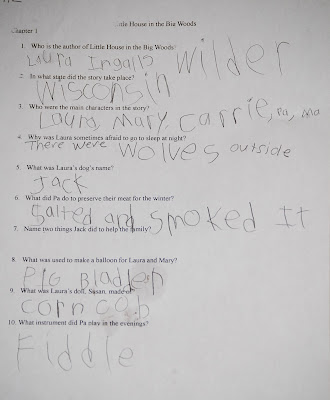 Little House in the Big Woods
Chapter 1
1. Who is the author of Little House in the Big Woods?
Laura Ingalls Wilder
2. In what state did the story take place?
Wisconsin
3. Who were the main characters in the story?
Laura, Mary, Carrie, Pa, Ma
4. Why was Laura sometimes afraid to go to sleep at night?
There were wolves outside
5. What was Laura's dog's name?
Jack
6. What did Pa do to preserve their meat for the winter?
Salted and smoked It
7. Name two things Jack did to help the family?
8. What was used to make a balloon for Laura and Mary?
PIG Bladder
9. What was Laura's doll, Susan, made of
corn cob
10. What instrument did Pa play in the evenings?
Fiddle